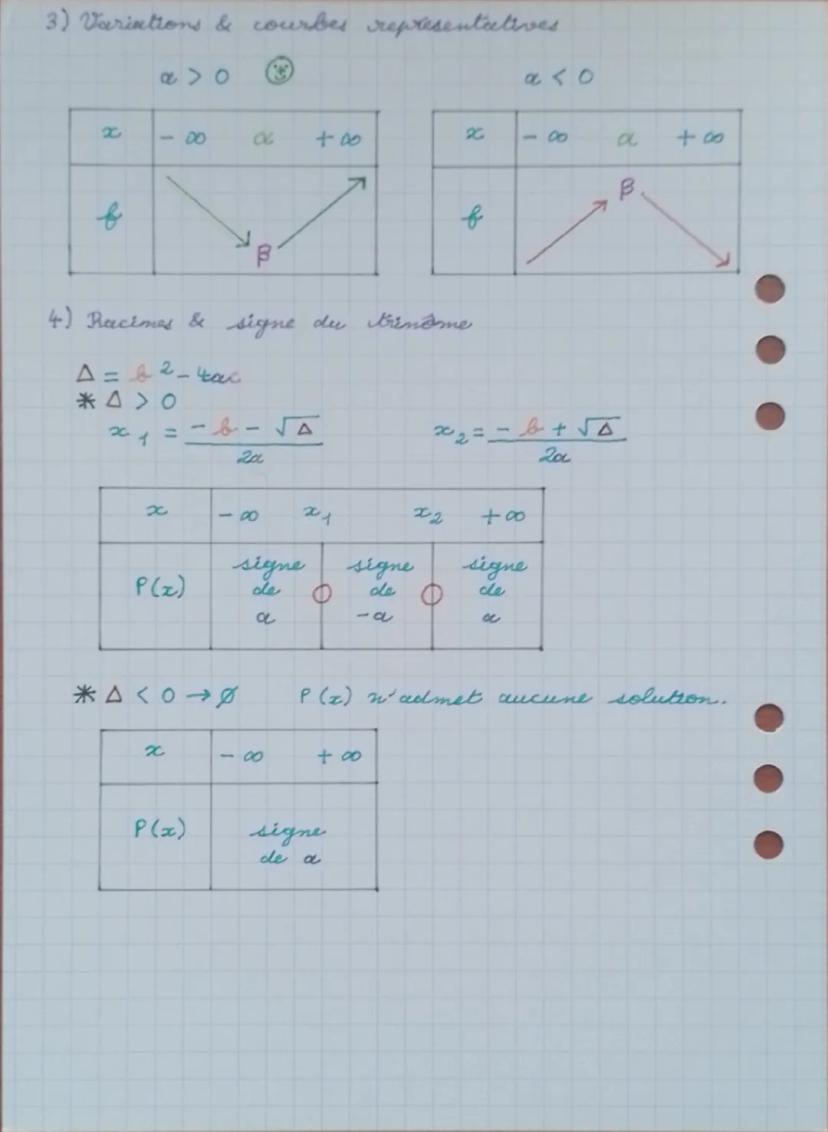 3) Variations & courbes représentatives
a > 0 a < 0
x - ∞ α + ∞ x - ∞ α + ∞
f β f β
4) Racines & signe du trinôme
Δ = b² - 4ac
* Δ > 0
x₁ = (-b - √Δ) / 2a x₂ = (-b + √Δ) / 2a
x - ∞ x₁ x₂ + ∞
P(x) signe de a 0 signe de -a 0 signe de a
* Δ < 0 → ∅ P(x) n'admet aucune solution.
x - ∞ + ∞
P(x) signe
de a